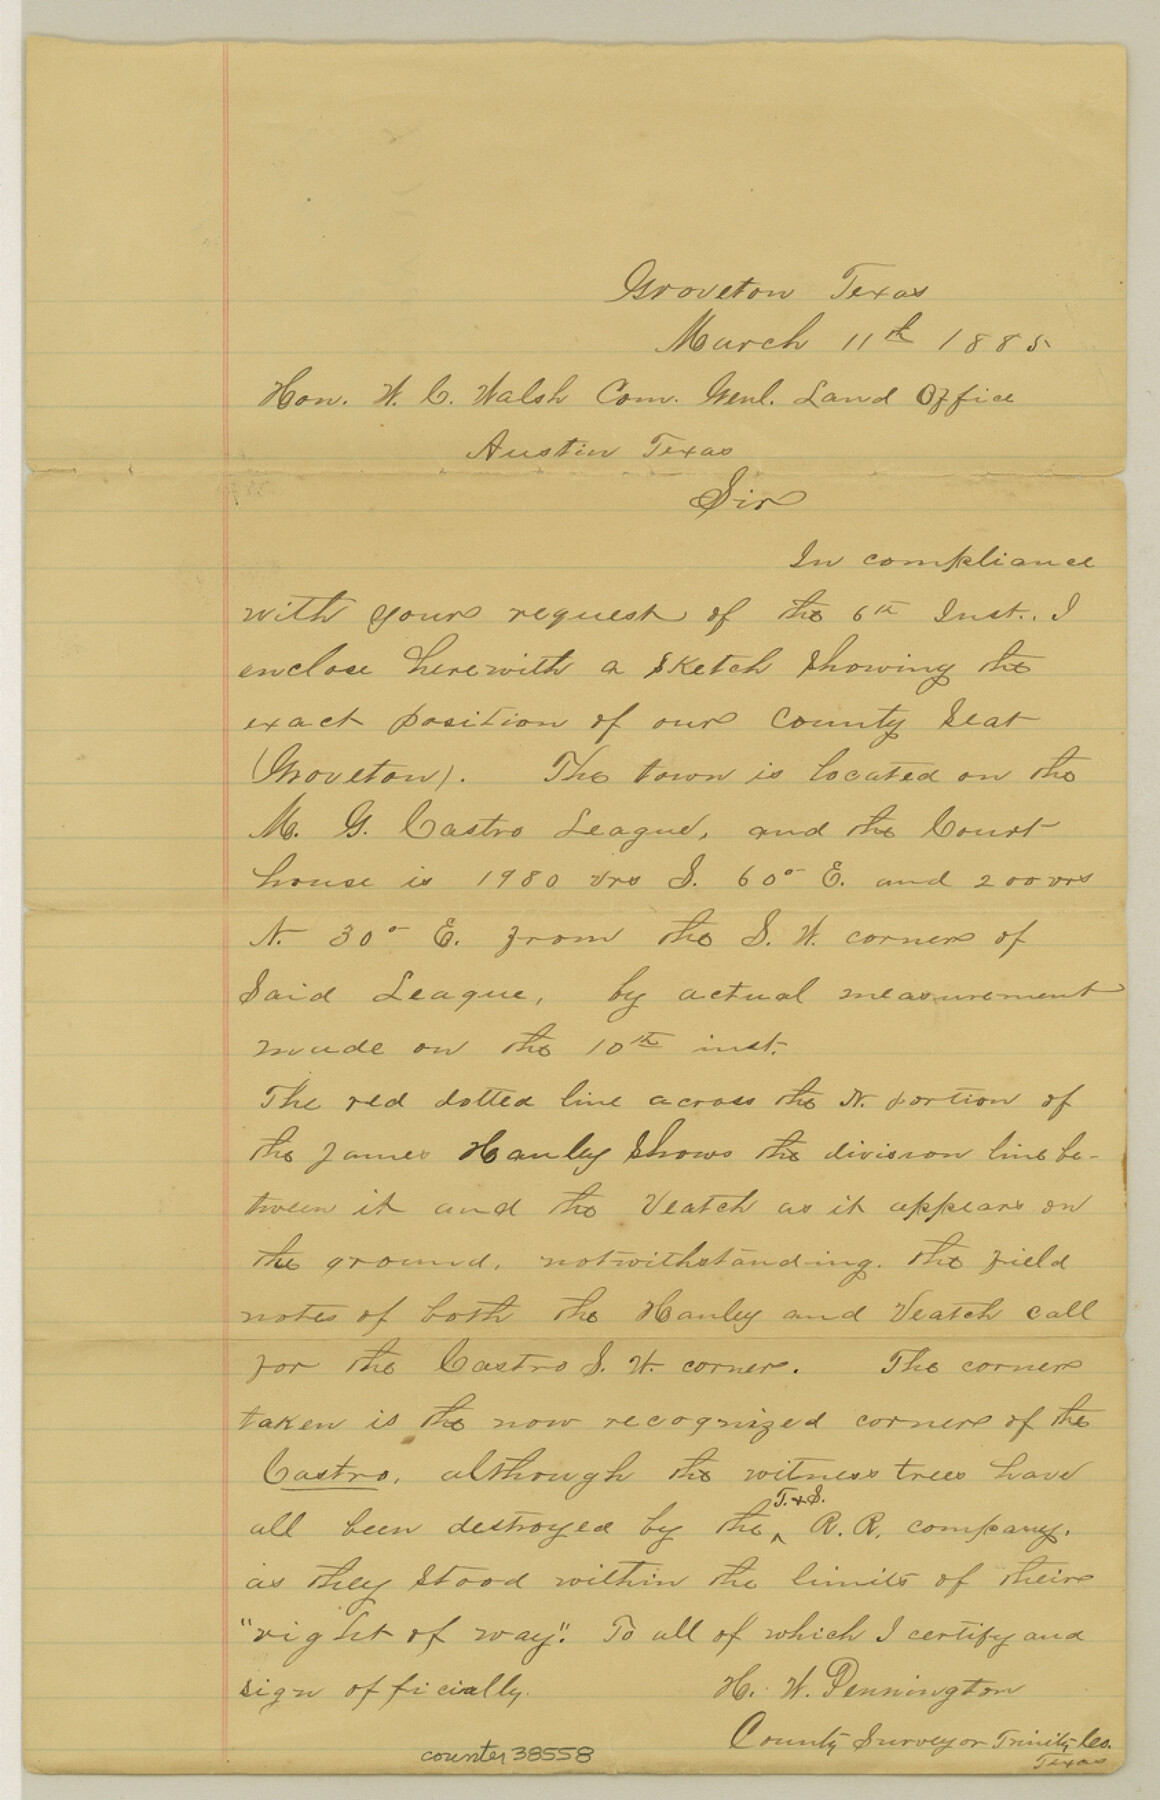 Groveton Texas
March 11th 1885
Hon. W. C. Walsh Com. Genl. Land Office
Austin Texas
Sir
In compliance
with your request of the 6th Inst., I
enclose herewith a sketch showing the
exact position of our County Seat
(Groveton). The town is located on the
M. G. Castro League, and the Court
house is 1980 vrs S. 60° E. and 200 vrs
N. 30° E. from the S. W. corner of
Said League, by actual measurement
made on the 10th inst.
The red dotted line across the N. portion of
the James Hanley Shows the division line be-
tween it and the Veatch as it appears on
the ground, notwithstanding, the field
notes of both the Hanley and Veatch call
for the Castro S. W. corner. The corner
taken is the now recognized corner of the
Castro, although the witness trees have
all been destroyed by the T. & S. R. R. company,
as they stood within the limits of their
"right of way". To all of which I certify and
sign officially.
H. W. Pennington
County Surveyor Trinity Co.
Texas
counter 38558